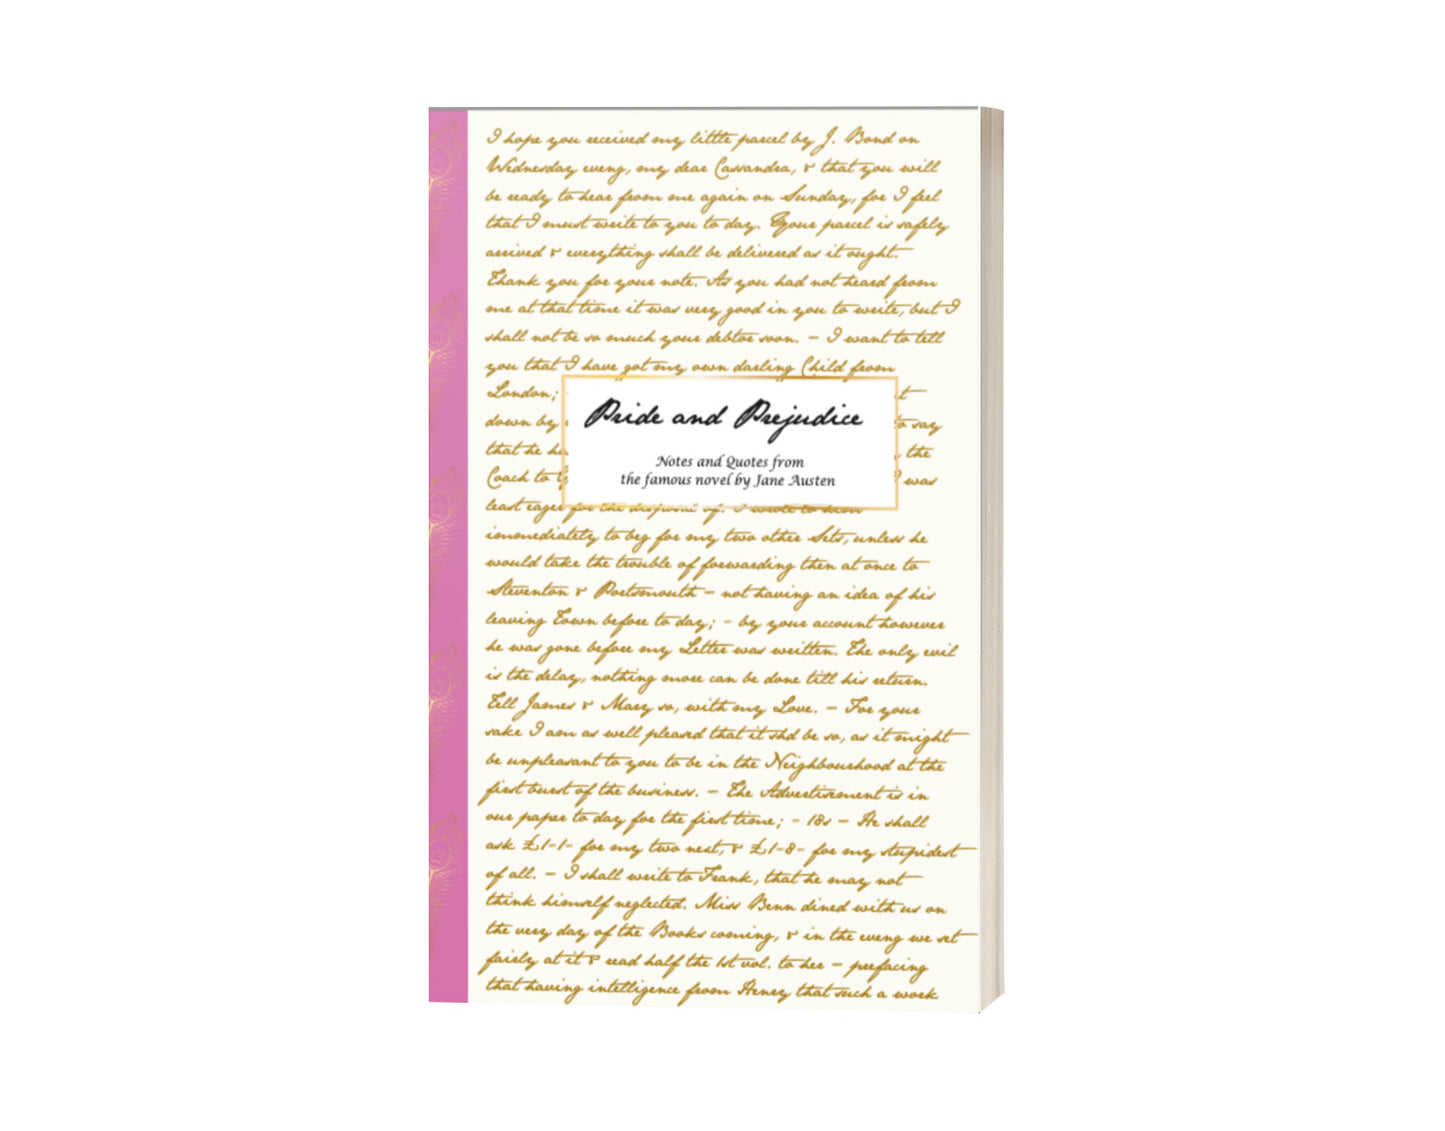 I hope you received my little parcel by J. Bond on
Wednesday eveng, my dear Cassandra, & that you will
be ready to hear from me again on Sunday, for I feel
that I must write to you to day. Your parcel is safely
arrived & everything shall be delivered as it ought.
Thank you for your note. As you had not heard from
me at that time it was very good in you to write, but I
shall not be so much your debtor soon. – I want to tell
you that I have got my own darling Child from
London;
down by say
that he the
Coach to was
Pride and Prejudice
Notes and Quotes from
the famous novel by Jane Austen
least eager for the disposal of. I wrote to him
immediately to beg for my two other Sets, unless he
would take the trouble of forwarding then at once to
Steventon & Portsmouth – not having an idea of his
leaving Town before to day; – by your account however
he was gone before my Letter was written. The only evil
is the delay, nothing more can be done till his return.
Tell James & Mary so, with my Love. – For your
sake I am as well pleased that it shd be so, as it might
be unpleasant to you to be in the Neighbourhood at the
first burst of the business. – The Advertisement is in
our paper to day for the first time; – 18s – He shall
ask £1-1- for my two next, & £1-8- for my stupidest
of all. – I shall write to Frank, that he may not
think himself neglected. Miss Benn dined with us on
the very day of the Books coming, & in the eveng we set
fairly at it & read half the 1st vol. to her – prefacing
that having intelligence from Henry that such a work